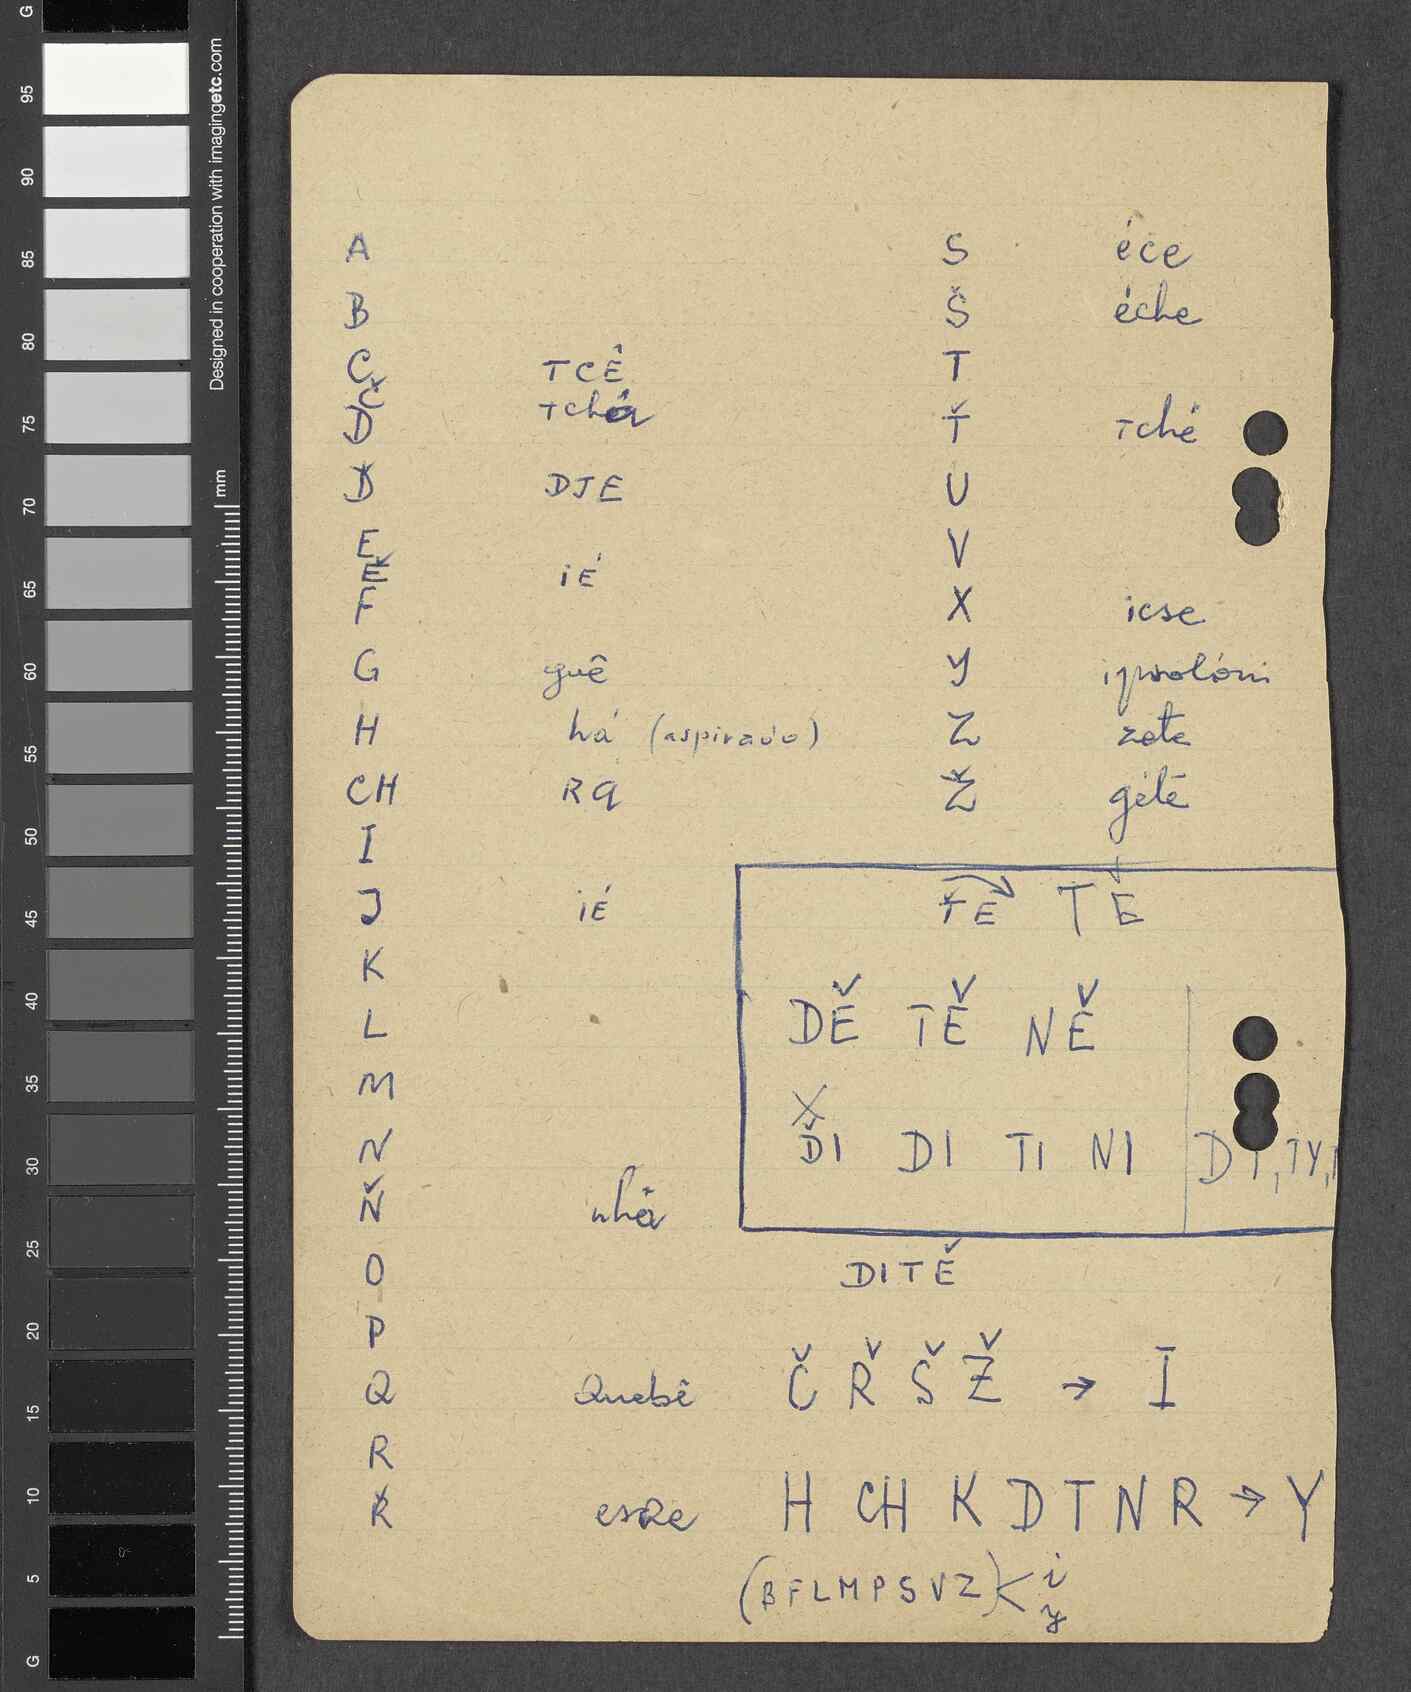 A
B
C TCÊ
Č tchá
D
Ď DJE
E
Ě iÉ
F
G guê
H há (aspirado)
CH RA
I
J iÉ
K
L
M
N
Ň nhê
O
P
Q Quebê
R
Ř esRe
S éce
Š éche
T
Ť Tché
U
V
X icse
Y ipsolóni
Z zete
Ž géte
ŤE TĚ
DĚ TĚ NĚ
X
ĎI DI TI NI DY, TY,
DITĚ
Č Ř Š Ž → I
H CH K D T N R → Y
(B F L M P S V Z) < i
y
Designed in cooperation with imagingetc.com
mm
G
95
90
85
80
75
70
65
60
55
50
45
40
35
30
25
20
15
10
5
G